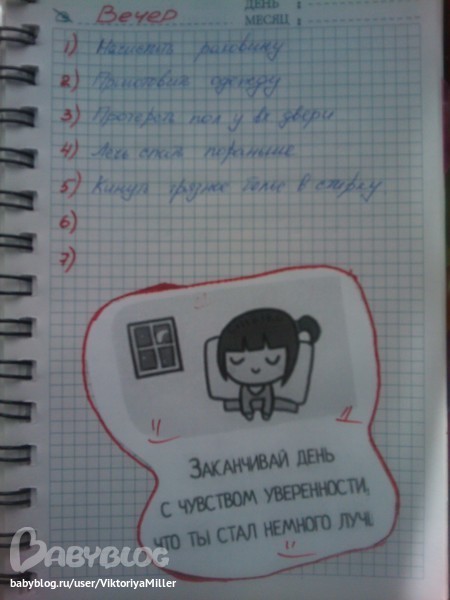 ДЕНЬ
Вечер МЕСЯЦ:
1) Начистить раковину
2) Приготовить одежду
3) Протереть пол у вх двери
4) Лечь спать пораньше
5) Кинуть грязное белье в стирку
6)
7)
ЗАКАНЧИВАЙ ДЕНЬ
С ЧУВСТВОМ УВЕРЕННОСТИ,
ЧТО ТЫ СТАЛ НЕМНОГО
BABYBLOG
babyblog.ru/user/ViktoriyaMiller